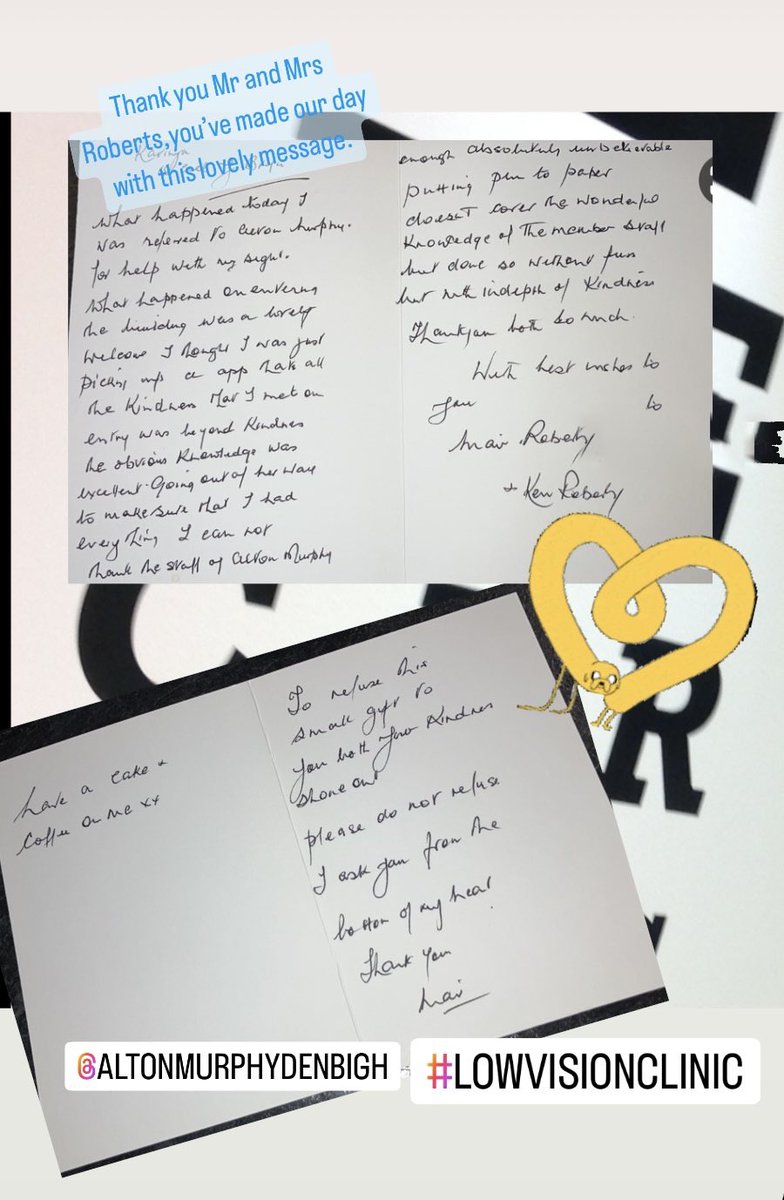 Thank you Mr and Mrs
Roberts, you've made our day
with this lovely message.
What happened today I
was referred to Alton Murphy.
for help with my sight.
What happened on entering
the building was a lovely
welcome I thought I was just
picking up a app thats all
the Kindness that I met on
entry was beyond Kindness
the obvious Knowledge was
excellent. Going out of her way
to make sure that I had
everything I can not
thank the staff of Alton Murphy
enough absolutely unbelievable
putting pen to paper
doesnt cover the wonderful
Knowledge of The member staff
but done so without fuss
but with indepth of Kindness
Thankyou both so much.
With best wishes to
you to
Mair Roberts
+ Ken Roberts
have a cake +
coffee on me xx
To refuse this
small gift to
you both your Kindness
shone out
please do not refuse
I ask you from the
bottom of my heart
Thank you
Mair
@ALTONMURPHYDENBIGH
#LOWVISIONCLINIC